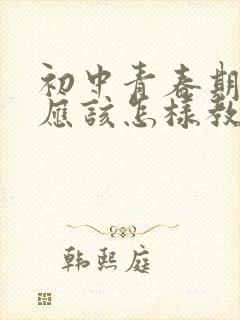 初中青春期
应该怎样教
韩熙庭